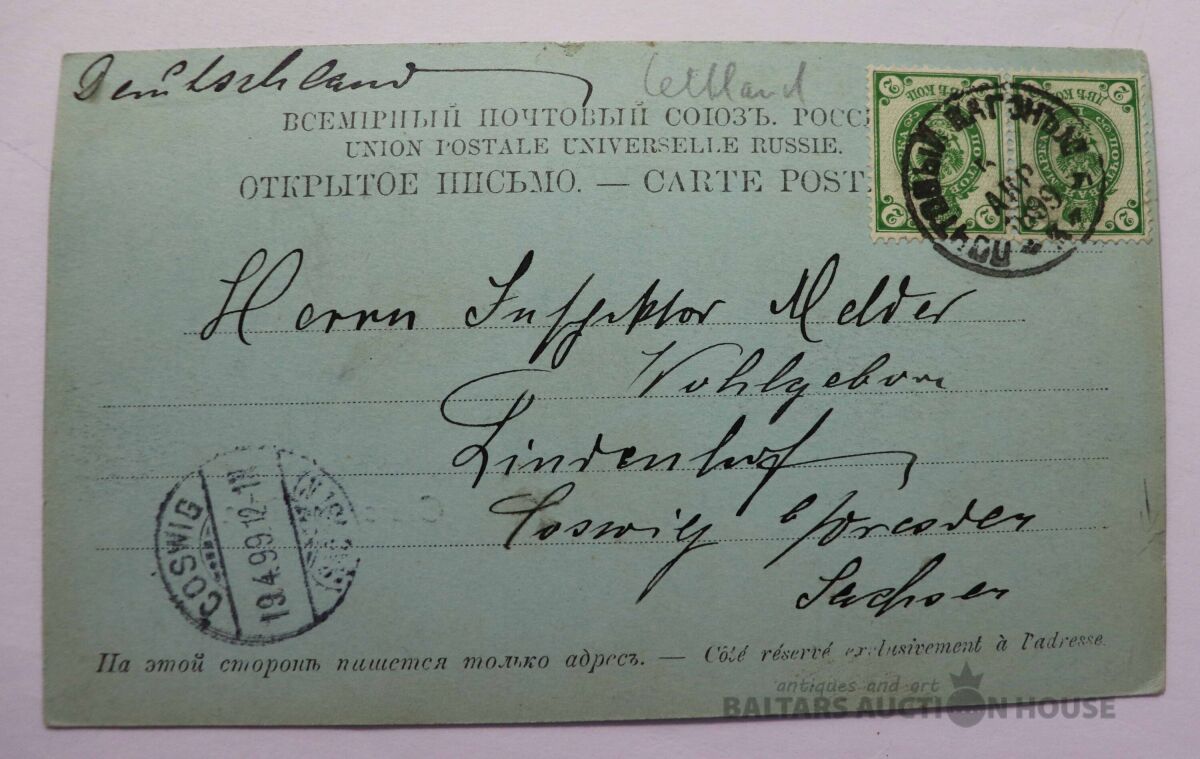 Deutschland
Lettland
ВСЕМІРНЫЙ ПОЧТОВЫЙ СОЮЗЪ. РОСС
UNION POSTALE UNIVERSELLE RUSSIE.
ОТКРЫТОЕ ПИСЬМО. — CARTE POST
2 ДВѢ КОП 2
2 2
ПОЧТОВЫЙ ВАГОНЪ
АПР
1899
Herrn Inspektor Melder
Wohlgeborn
Lindenhof
Coswig b/Dresden
Sachsen
COSWIG
19.4.99.12-1N
На этой сторонѣ пишется только адресъ. — Côté réservé exclusivement à l'adresse.
antiques and art
BALTARS AUCTION HOUSE